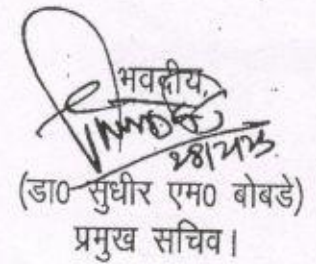 भवदीय,
(डा0 सुधीर एम0 बोबडे)
प्रमुख सचिव।